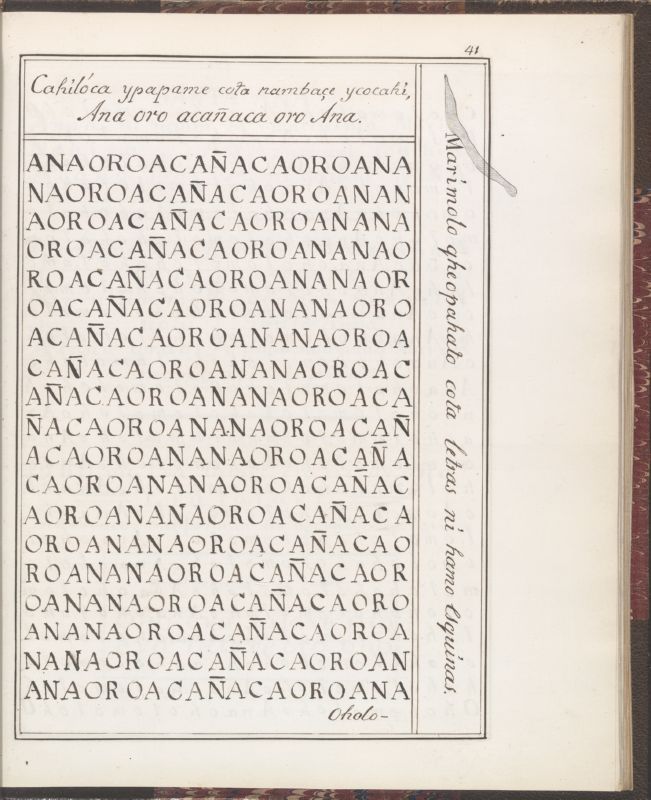 41
Cahilóca ypapame cota nambaçe ycocahi,
Ana oro acañaca oro Ana.
ANAOROACAÑACAOROANA
NAOROACAÑACAOROANAN
AOROACAÑACAOROANANA
OROACAÑACAOROANANAO
ROACAÑACAOROANANAOR
OACAÑACAOROANANAORO
ACAÑACAOROANANAOROA
CAÑACAOROANANAOROAC
AÑACAOROANANAOROACA
ÑACAOROANANAOROACAÑ
ACAOROANANAOROACAÑA
CAOROANANAOROACAÑAC
AOROANANAOROACAÑACA
OROANANAOROACAÑACAO
ROANANAOROACAÑACAOR
OANANAOROACAÑACAORO
ANANAOROACAÑACAOROA
NANAOROACAÑACAOROAN
ANAOROACAÑACAOROANA
Oholo-
Marimoto qheopahato cota letras ni hamo Esquinas.